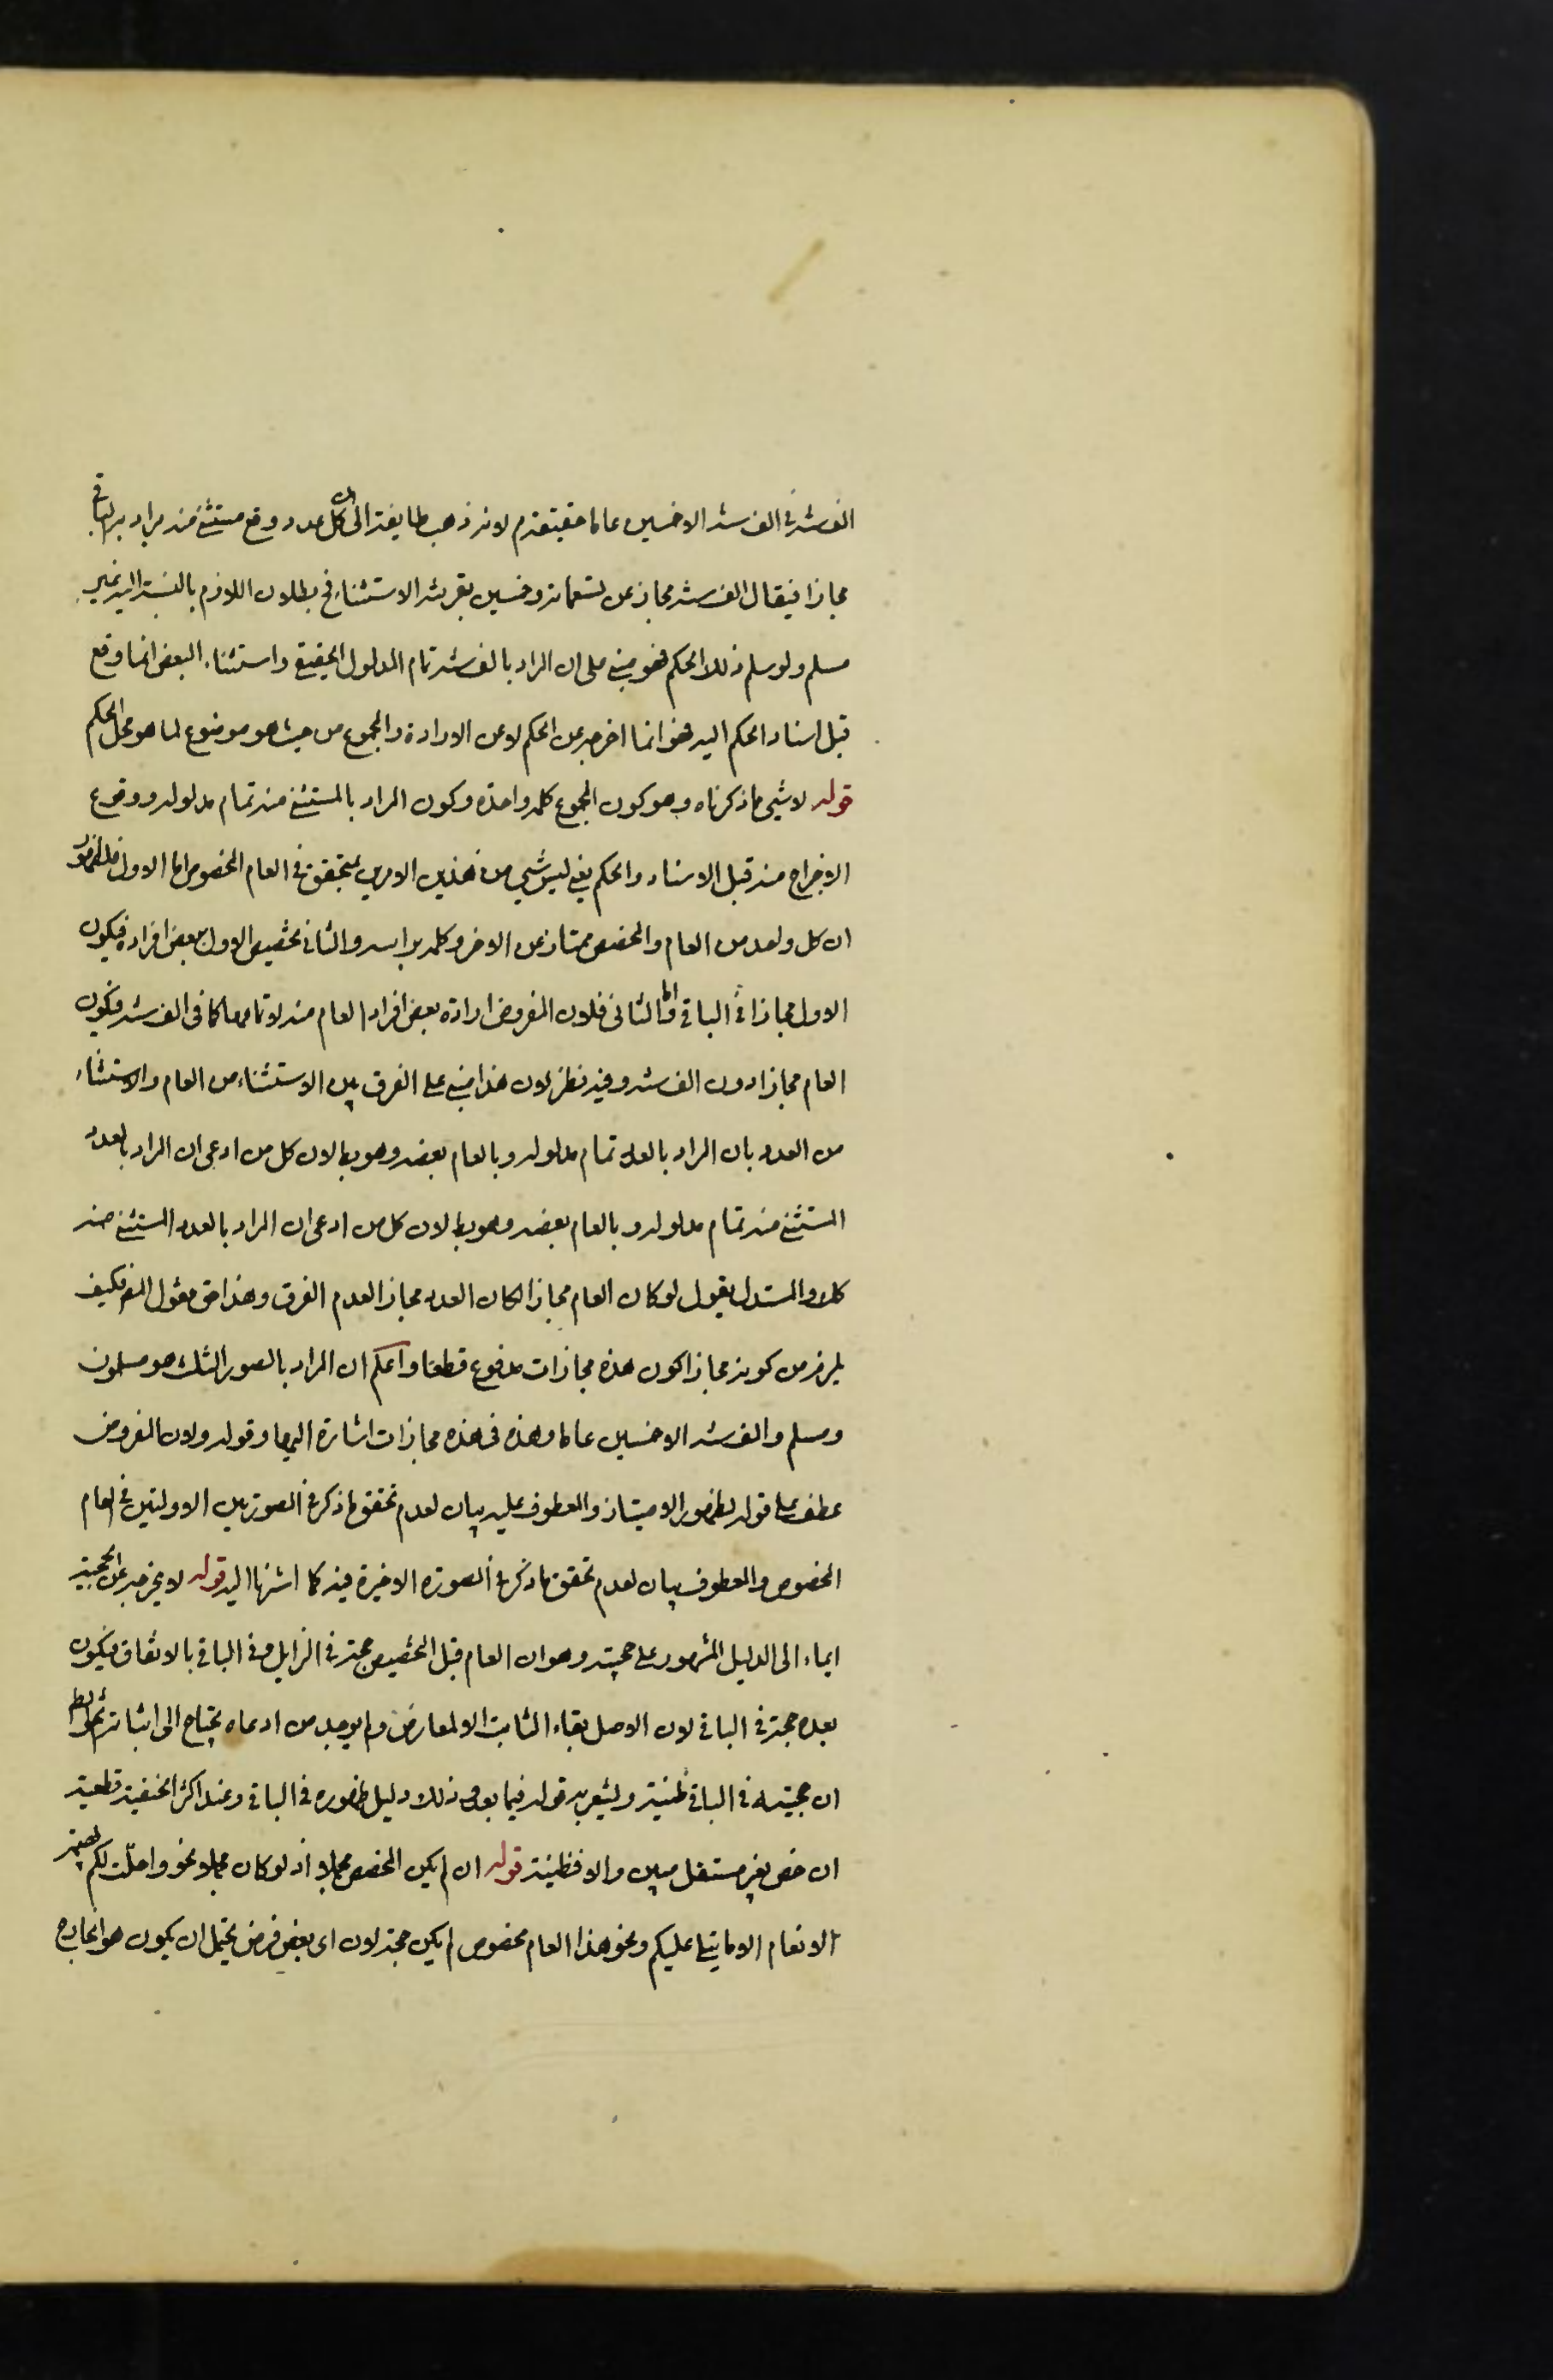 الف سنة في الف سنة الا خمسين عاما حقيقة م لانه ذهب طايفة الى ان كل عدد وقع مستثنى منه يراد به الباقي
مجازا فيقال الف سنة مجاز عن تسعماته وخمسين بقرينة الاستثناء فح بطلان اللازم بالنسبة اليه غير
مسلم ولو سلم ذلك الحكم فهو مبنى على ان المراد بالف سنة تمام المدلول الحقيقى واستثناء البعض انما وقع
قبل اسناد الحكم اليه فهو انما اخرجه عن الحكم لا عن الارادة والمجموع من حيث هو موضوع لما هو محل الحكم
قوله لا شيئ مما ذكرناه وهو كون المجموع كلمه واحدة وكون المراد بالمستثنى منه تمام مدلوله ووقوع
الاخراج منه قبل الاسناد والحكم يعنى ليس شيئ من هذين الامرين بمتحقق في العام المخصوص اما الاول فلظهور
ان كل واحد من العام والمخصص ممتاز عن الاخر وكلمه براسه والثانى تخصيص الاول ببعض افراده فيكون
الاول مجازا في الباقي واما الثانى فلان المفروض ارادة بعض افراد العام منه لا تمامها كما في الف سنة فيكون
العام مجازا دون الف سنة وفيه نظر لان هذا مبنى على الفرق بين الاستثناء من العام والاستثناء
من العدد بان المراد بالعدد تمام مدلوله وبالعام بعضه وهو بط لان كل من ادعى ان المراد بالعدد
المستثنى منه تمام مدلوله وبالعام بعضه وهو بط لان كل من ادعى ان المراد بالعدد المستثنى منه
كله والمستدل يقول لو كان العام مجازا لكان العدد مجازا لعدم الفرق وهذا حق فقول المص فكيف
يلزم من كونه مجازا كون هذه مجازات مدفوع قطعا واعلم ان المراد بالصور الثلث هو مسلمون
ومسلم والف سنة الا خمسين عاما وهذه في هذه مجازات اشارة اليها وقوله ولان المفروض
عطف على قوله لظهور الامتياز والمعطوف عليه بيان لعدم تحقق ما ذكر في الصورتين الاوليتين في العام
المخصوص والمعطوف بيان لعدم تحقق ما ذكر في الصورة الاخيرة فيه كما اشرنا اليه قوله لا يخرجه عن الحجية
ايماء الى الدليل المشهور على حجيته وهو ان العام قبل التخصيص حجة في الزايل وفي الباقي بالاتفاق فيكون
بعده حجة في الباقي لان الاصل بقاء الثابت الا لمعارض ولم يوجد من ادعاه يحتاج الى اثباته
ان حجيته في الباقي ظنية ويشعر به قوله فيما بعد وذلك دليل ظهوره في الباقي وعند اكثر الحنفية قطعية
ان خص بغير مستقل مبين والا فظنية قوله ان لم يكن المخصص مجملا اذ لو كان مجملا نحو واحلت لكم بهيمة
الانعام الا ما يتلى عليكم ونحو هذا العام مخصوص لم يكن حجة لان اى بعض فرض يحتمل ان يكون هو الخارج